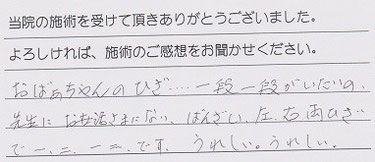 当院の施術を受けて頂きありがとうございました。
よろしければ、施術のご感想をお聞かせください。
おばあちゃんのひざ‥‥一段一段がいたいの、
先生にお世話さまになり、ばんざい、左、右両ひざ
で一、二、一二、です、うれしい。うれしい。